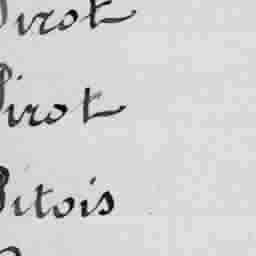 Pirot
Pirot
Bitois